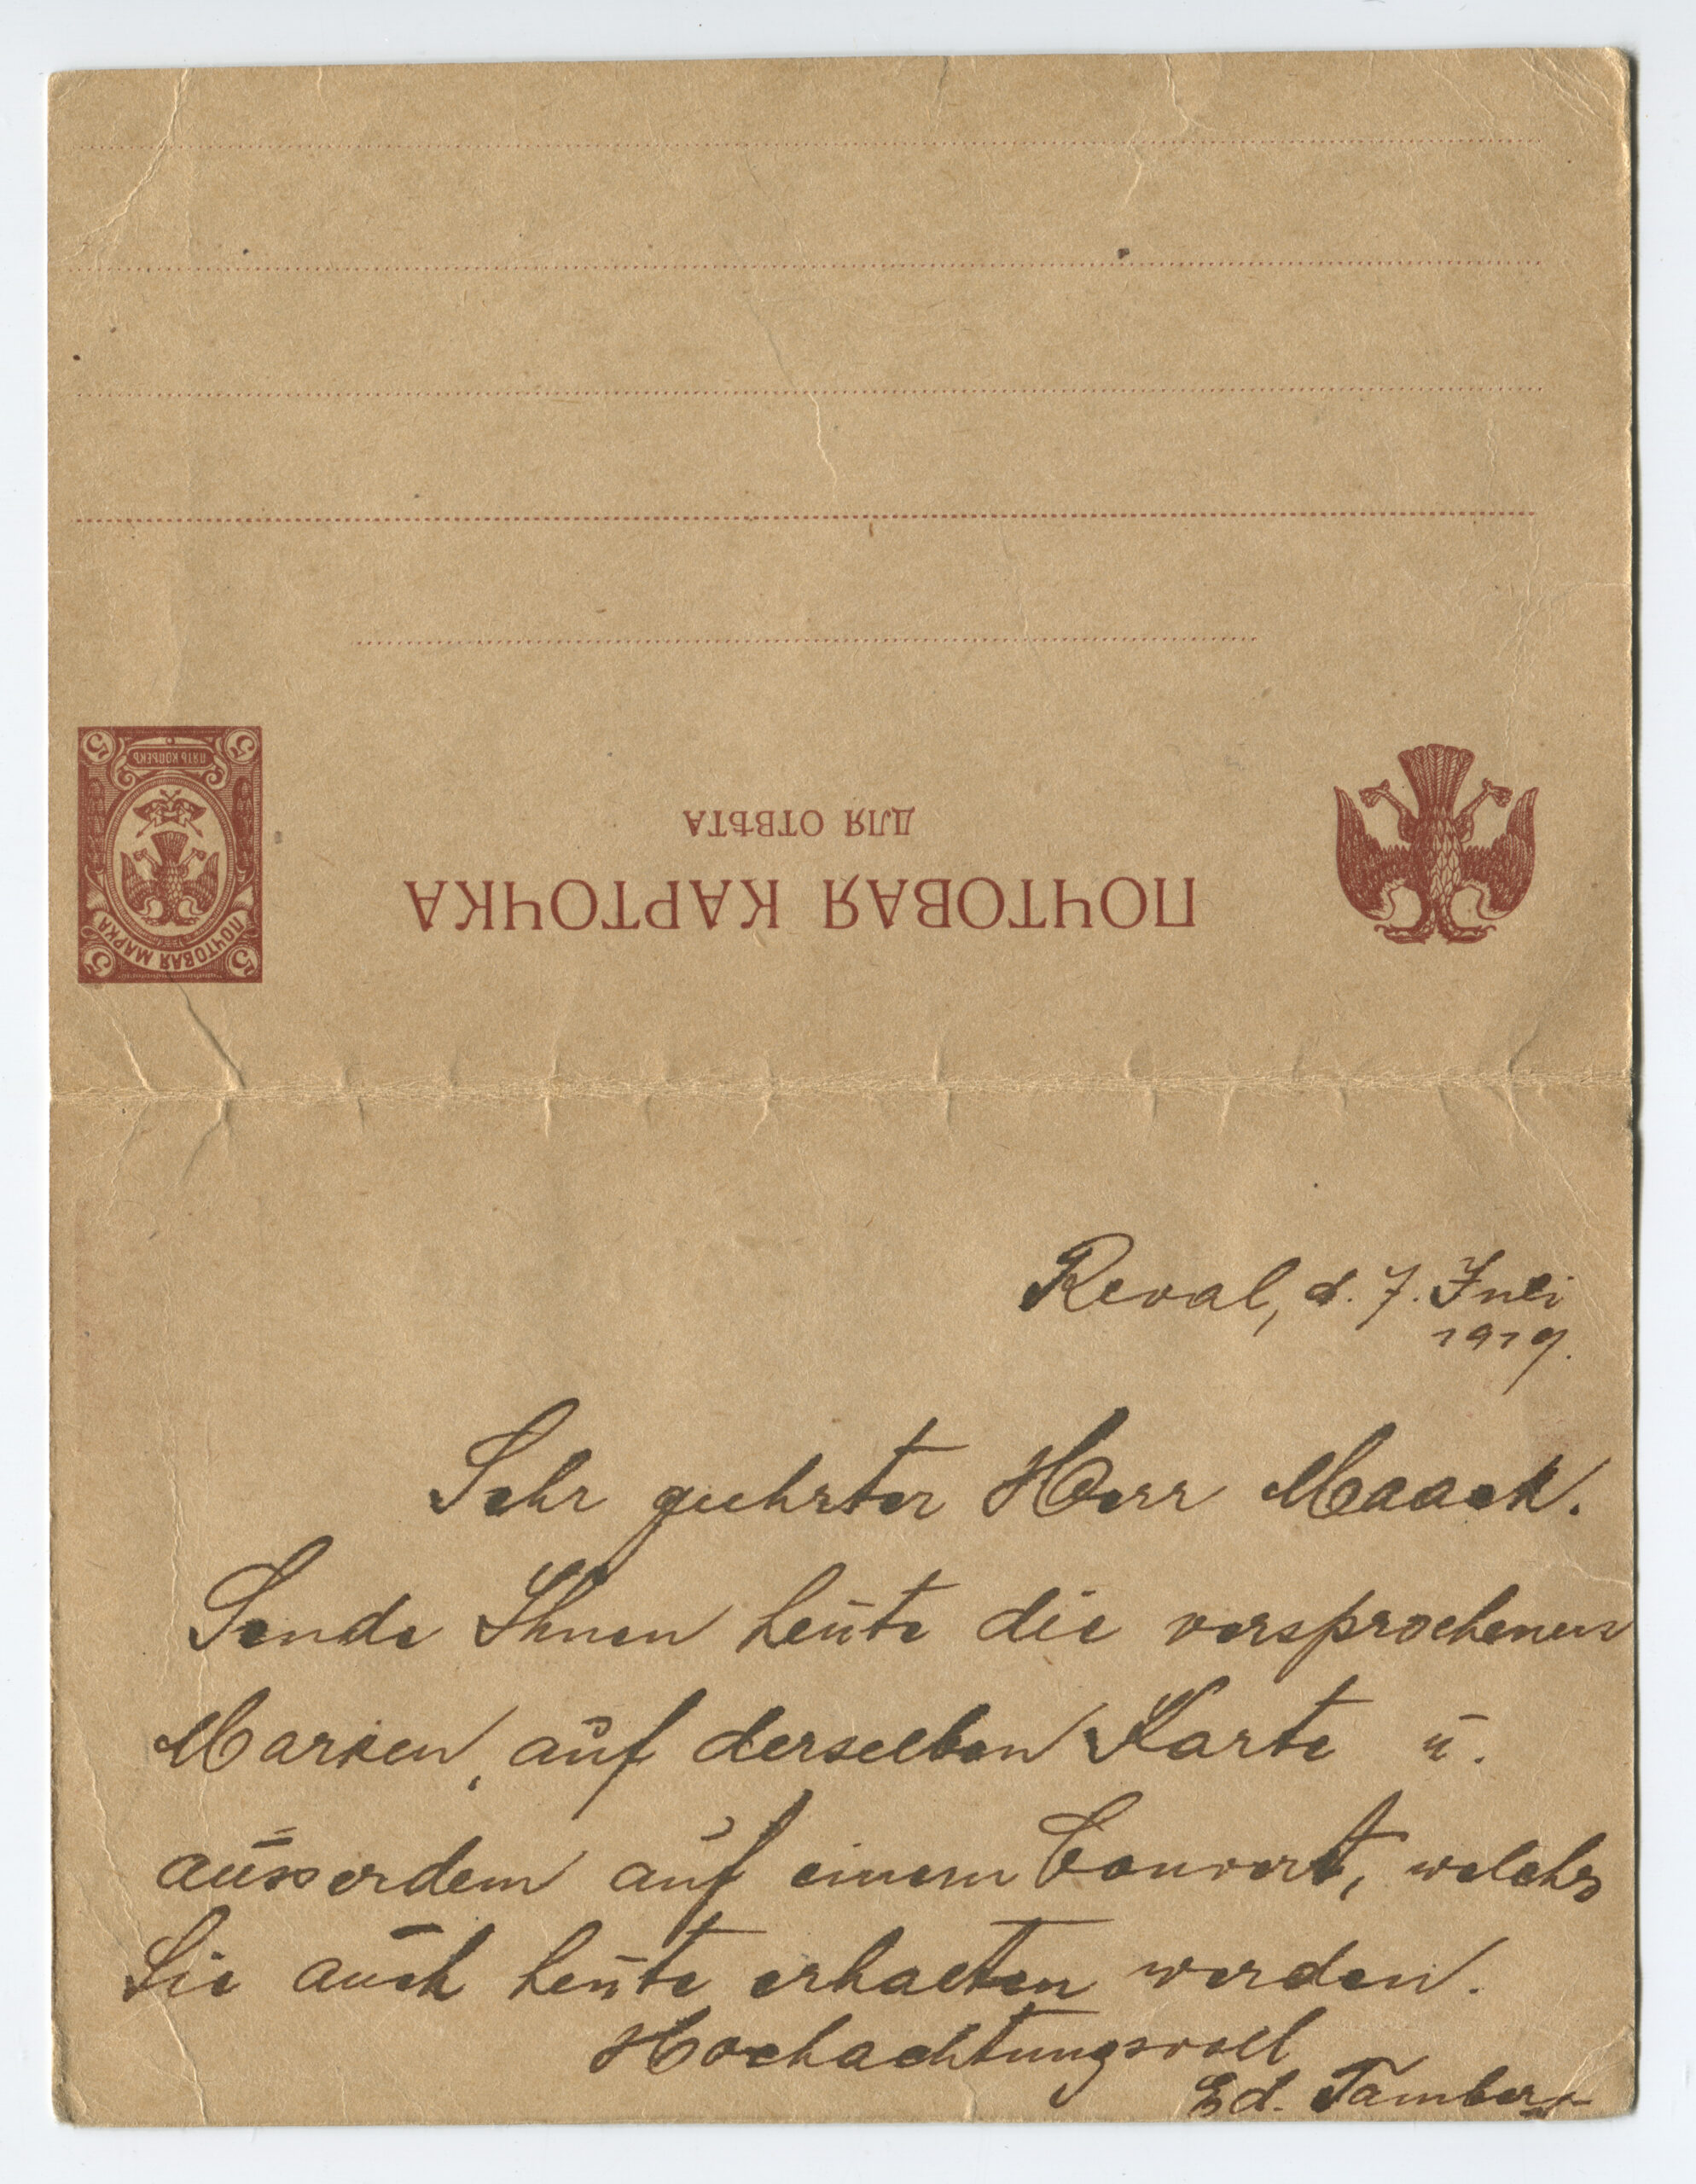 ПОЧТОВАЯ КАРТОЧКА
ДЛЯ ОТВѢТА
ПОЧТОВАЯ МАРКА
ПЯТЬ КОПѢЕКЪ
5 5
5 5
Reval, d. 7. Juli
1919.
Sehr geehrter Herr Maack.
Sende Ihnen heute die versprochenen
Marken, auf derselben Karte u.
ausserdem auf einem Couvert, welches
Sie auch heute erhalten werden.
Hochachtungsvoll
Ed. Tamberg